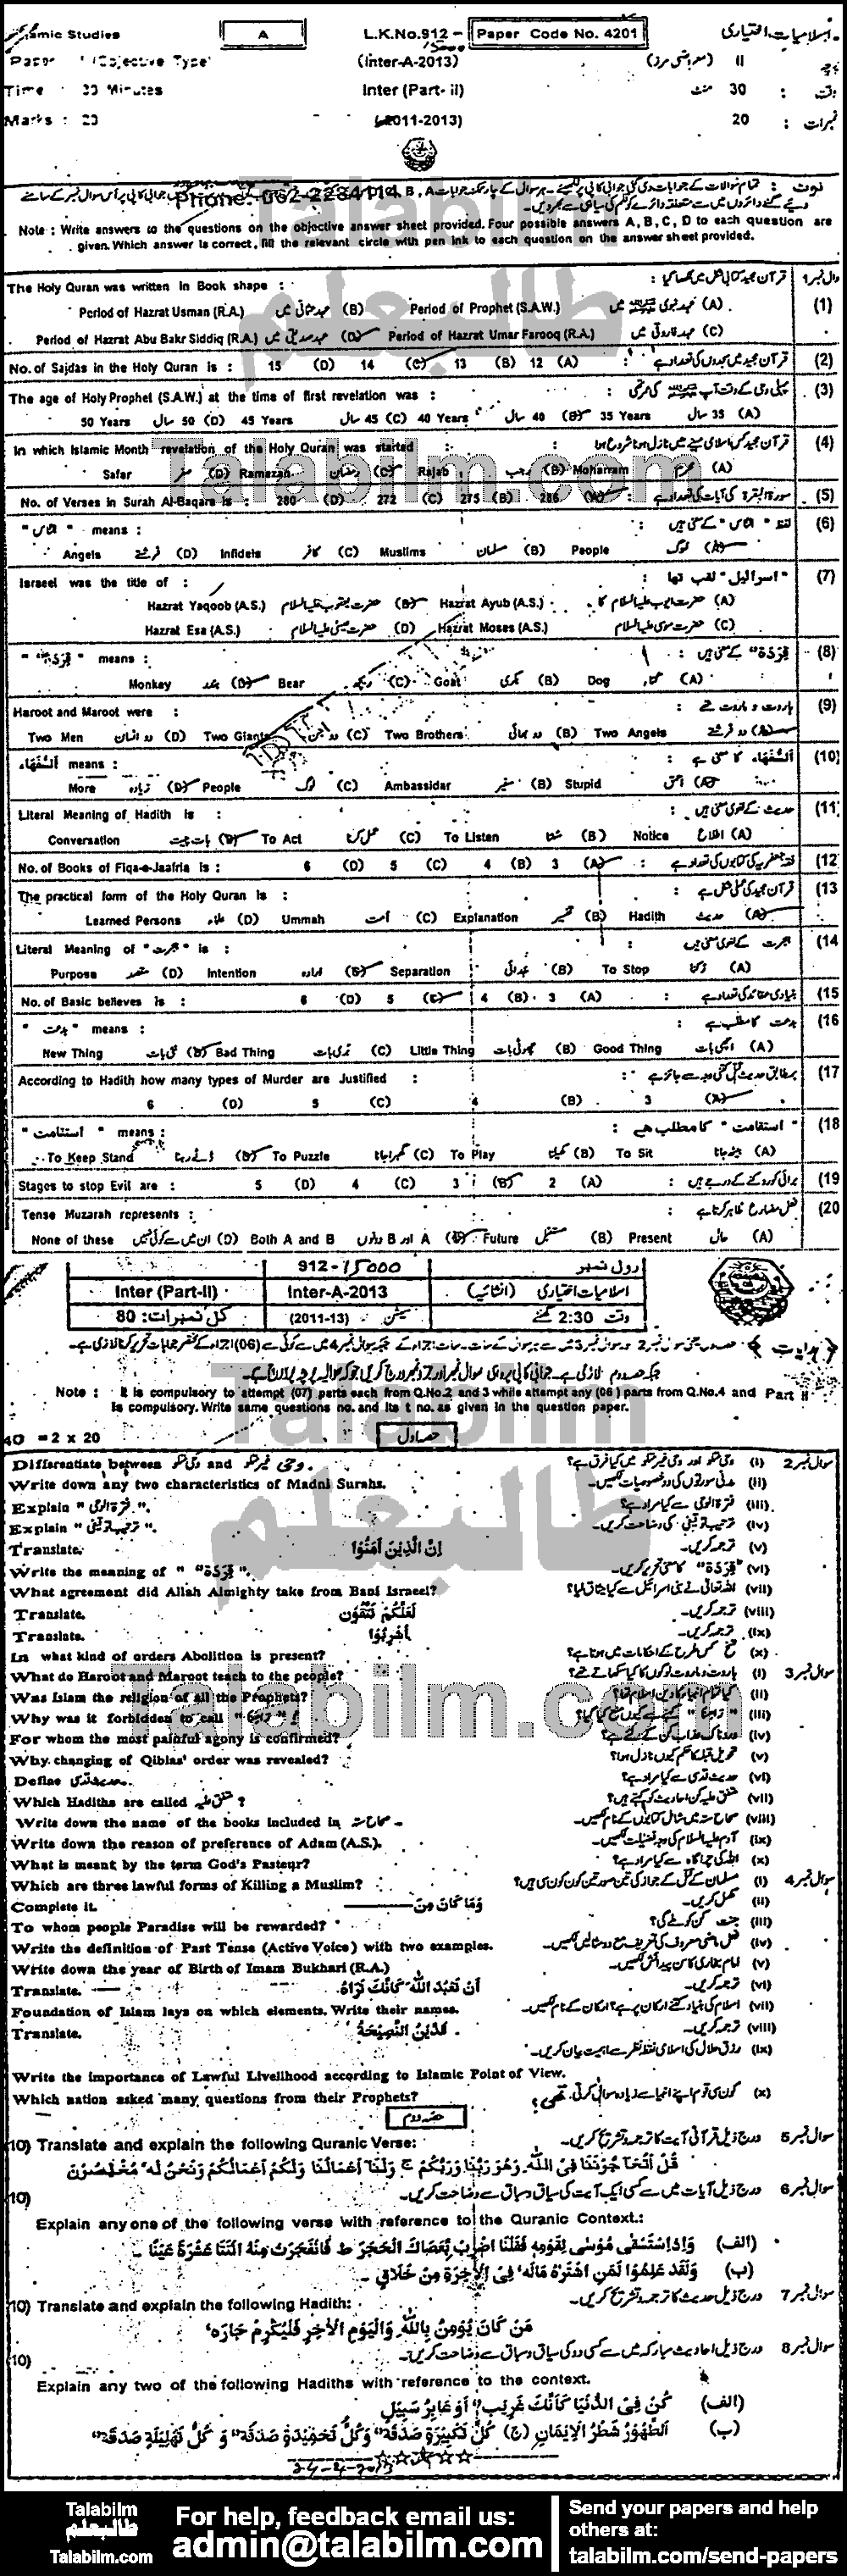 Islamic Studies A L.K.No.912 - 15000 Paper Code No. 4201 اسلامیات اختیاری
Paper (Objective Type) (Inter-A-2013) II (معروضی طرز) پرچہ
Time : 30 Minutes Inter (Part- II) وقت : 30 منٹ
Marks : 20 (2011-2013) نمبرات : 20
Phone: 062-2284114
Note : Write answers to the questions on the objective answer sheet provided. Four possible answers A, B, C, D to each question are
given. Which answer is correct, fill the relevant circle with pen ink to each question on the answer sheet provided.
The Holy Quran was written in Book shape : قرآن مجید کتابی شکل میں لکھا گیا : سوال نمبر 1
Period of Hazrat Usman (R.A.) عہد عثمانی میں (B) Period of Prophet (S.A.W.) عہد نبوی میں (A) (1)
Period of Hazrat Abu Bakr Siddiq (R.A.) عہد صدیقی میں (D) Period of Hazrat Umar Farooq (R.A.) عہد فاروقی میں (C)
No. of Sajdas in the Holy Quran is : 15 (D) 14 (C) 13 (B) 12 (A) قرآن مجید میں سجدوں کی تعداد ہے : (2)
The age of Holy Prophet (S.A.W.) at the time of first revelation was : پہلی وحی کے وقت آپ کی عمر تھی : (3)
50 Years 50 سال (D) 45 Years 45 سال (C) 40 Years 40 سال (B) 35 Years 35 سال (A)
In which Islamic Month revelation of the Holy Quran was started : قرآن مجید کس اسلامی مہینے میں نازل ہونا شروع ہوا : (4)
Safar صفر (D) Ramazan رمضان (C) Rajab رجب (B) Moharram محرم (A)
No. of Verses in Surah Al-Baqara is : 280 (D) 272 (C) 275 (B) 286 (A) سورۃ البقرۃ کی آیات کی تعداد ہے : (5)
" الناس " means : لفظ "الناس" کے معنی ہیں : (6)
Angels فرشتے (D) Infidels کافر (C) Muslims مسلمان (B) People لوگ (A)
Israeel was the title of : "اسرائیل" لقب تھا : (7)
Hazrat Yaqoob (A.S.) حضرت یعقوب علیہ السلام (B) Hazrat Ayub (A.S.) حضرت ایوب علیہ السلام کا (A)
Hazrat Esa (A.S.) حضرت عیسیٰ علیہ السلام (D) Hazrat Moses (A.S.) حضرت موسیٰ علیہ السلام (C)
" قِرَدَةً " means : "قِرَدَةً" کے معنی ہیں : (8)
Monkey بندر (D) Bear ریچھ (C) Goat بکری (B) Dog کتا (A)
Haroot and Maroot were : ہاروت و ماروت تھے : (9)
Two Men دو انسان (D) Two Giants دو جن (C) Two Brothers دو بھائی (B) Two Angels دو فرشتے (A)
اَلسُّفَهَاء means : اَلسُّفَهَاء کا معنی ہے : (10)
More زیادہ (D) People لوگ (C) Ambassidar سفیر (B) Stupid احمق (A)
Literal Meaning of Hadith is : حدیث کے لغوی معنی ہیں : (11)
Conversation بات چیت (D) To Act عمل کرنا (C) To Listen سننا (B) Notice اطلاع (A)
No. of Books of Fiqa-e-Jaafria is : 6 (D) 5 (C) 4 (B) 3 (A) فقہ جعفریہ کی کتابوں کی تعداد ہے : (12)
The practical form of the Holy Quran is : قرآن مجید کی عملی شکل ہے : (13)
Learned Persons علماء (D) Ummah امت (C) Explanation تفسیر (B) Hadith حدیث (A)
Literal Meaning of "ہجرت" is : ہجرت کے لغوی معنی ہیں : (14)
Purpose مقصد (D) Intention ارادہ (C) Separation جدائی (B) To Stop رکنا (A)
No. of Basic believes is : 6 (D) 5 (C) 4 (B) 3 (A) بنیادی عقائد کی تعداد ہے : (15)
" بدعت " means : بدعت کا مطلب ہے : (16)
New Thing نئی بات (D) Bad Thing بری بات (C) Little Thing چھوٹی بات (B) Good Thing اچھی بات (A)
According to Hadith how many types of Murder are Justified : بمطابق حدیث قتل کتنی وجہ سے جائز ہے : (17)
6 (D) 5 (C) 4 (B) 3 (A)
" استقامت " means : " استقامت " کا مطلب ہے : (18)
To Keep Stand ڈٹے رہنا (D) To Puzzle گھبرا جانا (C) To Play کھیلنا (B) To Sit بیٹھ جانا (A)
Stages to stop Evil are : 5 (D) 4 (C) 3 (B) 2 (A) برائی کو روکنے کے درجے ہیں : (19)
Tense Muzarah represents : فعل مضارع ظاہر کرتا ہے : (20)
None of these ان میں سے کوئی نہیں (D) Both A and B A اور B دونوں (C) Future مستقبل (B) Present حال (A)
912-15000 رول نمبر
Inter (Part-II) Inter-A-2013 اسلامیات اختیاری (انشائیہ)
کل نمبرات: 80 (2011-13) سیشن وقت 2:30 گھنٹے
Note : It is compulsory to attempt (07) parts each from Q.No.2 and 3 while attempt any (06) parts from Q.No.4 and Part II
is compulsory. Write same questions no. and its t no. as given in the question paper.
40 = 2 x 20 حصہ اول
Differentiate between وحی متلو and وحی غیر متلو. وحی متلو اور وحی غیر متلو میں کیا فرق ہے؟ (i) سوال نمبر 2
Write down any two characteristics of Madni Surahs. مدنی سورتوں کی دو خصوصیات لکھیں۔ (ii)
Explain " فترۃ الوحی ". فترۃ الوحی سے کیا مراد ہے؟ (iii)
Explain " ترتیب توقیفی ". ترتیب توقیفی کی وضاحت کریں۔ (iv)
Translate. اِنَّ الَّذِيْنَ اٰمَنُوْا ترجمہ کریں۔ (v)
Write the meaning of " قِرَدَةً ". "قِرَدَةً" کا معنی تحریر کریں۔ (vi)
What agreement did Allah Almighty take from Bani Israeel? اللہ تعالیٰ نے بنی اسرائیل سے کیا میثاق لیا؟ (vii)
Translate. لَعَلَّكُمْ تَتَّقُوْنَ ترجمہ کریں۔ (viii)
Translate. اُشْرِبُوْا ترجمہ کریں۔ (ix)
In what kind of orders Abolition is present? نسخ کس طرح کے احکامات میں ہوتا ہے؟ (x)
What do Haroot and Maroot teach to the people? ہاروت و ماروت لوگوں کو کیا سکھاتے تھے؟ (i) سوال نمبر 3
Was Islam the religion of all the Prophets? کیا تمام انبیاء کا دین اسلام تھا؟ (ii)
Why was it forbidden to call " رَاعِنَا " ? " رَاعِنَا " کہنے سے کیوں منع کیا گیا؟ (iii)
For whom the most painful agony is confirmed? دردناک عذاب کن کے لئے ہے؟ (iv)
Why changing of Qiblas' order was revealed? تحویل قبلہ کا حکم کیوں نازل ہوا؟ (v)
Define حدیث قدسی. حدیث قدسی سے کیا مراد ہے؟ (vi)
Which Hadiths are called متفق علیہ ? متفق علیہ کن احادیث کو کہتے ہیں؟ (vii)
Write down the name of the books included in صحاح ستہ - صحاح ستہ میں شامل کتابوں کے نام لکھیں۔ (viii)
Write down the reason of preference of Adam (A.S.). آدم علیہ السلام کی وجہ فضیلت لکھیں۔ (ix)
What is meant by the term God's Pasteur? اللہ کی چراگاہ سے کیا مراد ہے؟ (x)
Which are three lawful forms of Killing a Muslim? مسلمان کے قتل کے جواز کی تین صورتیں کون کون سی ہیں؟ (i) سوال نمبر 4
Complete it. وَمَا كَانَ مِنَ ———— مکمل کریں۔ (ii)
To whom people Paradise will be rewarded? جنت کن کو ملے گی؟ (iii)
Write the definition of Past Tense (Active Voice) with two examples. فعل ماضی معروف کی تعریف مع دو مثالیں لکھیں۔ (iv)
Write down the year of Birth of Imam Bukhari (R.A.) امام بخاری کا سن پیدائش لکھیں۔ (v)
Translate. اَنْ تَعْبُدَ اللّٰهَ كَاَنَّكَ تَرَاهُ ترجمہ کریں۔ (vi)
Foundation of Islam lays on which elements. Write their names. اسلام کی بنیاد کتنے ارکان پر ہے؟ ارکان کے نام لکھیں۔ (vii)
Translate. اَلدِّيْنُ النَّصِيْحَةُ ترجمہ کریں۔ (viii)
رزق حلال کی اسلامی نقطہ نظر سے اہمیت بیان کریں۔ (ix)
Write the importance of Lawful Livelihood according to Islamic Point of View.
Which nation asked many questions from their Prophets? کون سی قوم اپنے انبیاء سے زیادہ سوال کرتی تھی؟ (x)
حصہ دوم
10) Translate and explain the following Quranic Verse: درج ذیل قرآنی آیت کا ترجمہ و تشریح کریں۔ سوال نمبر 5
قُلْ اَتُحَآجُّوْنَنَا فِي اللّٰهِ وَهُوَ رَبُّنَا وَرَبُّكُمْ ج وَلَنَآ اَعْمَالُنَا وَلَكُمْ اَعْمَالُكُمْ وَنَحْنُ لَهٗ مُخْلِصُوْنَ
10) درج ذیل آیات میں سے کسی ایک آیت کی سیاق و سباق سے وضاحت کریں۔ سوال نمبر 6
Explain any one of the following verse with reference to the Quranic Context.:
(الف) وَاِذِاسْتَسْقٰى مُوْسٰى لِقَوْمِهٖ فَقُلْنَا اضْرِبْ بِّعَصَاكَ الْحَجَرَ ط فَانْفَجَرَتْ مِنْهُ اثْنَتَا عَشْرَةَ عَيْنًا -
(ب) وَلَقَدْ عَلِمُوْا لَمَنِ اشْتَرٰهُ مَالَهٗ فِي الْاٰخِرَةِ مِنْ خَلَاقٍ -
10) Translate and explain the following Hadith: درج ذیل حدیث کا ترجمہ و تشریح کریں۔ سوال نمبر 7
مَنْ كَانَ يُؤْمِنُ بِاللّٰهِ وَالْيَوْمِ الْاٰخِرِ فَلْيُكْرِمْ جَارَهٗ
10) درج ذیل احادیث مبارکہ میں سے کسی دو کی سیاق و سباق سے وضاحت کریں۔ سوال نمبر 8
Explain any two of the following Hadiths with reference to the context.
(الف) كُنْ فِي الدُّنْيَا كَاَنَّكَ غَرِيْبٌ اَوْ عَابِرُ سَبِيْلٍ
(ب) اَلطَّهُوْرُ شَطْرُ الْاِيْمَانِ (ج) كُلُّ تَكْبِيْرَةٍ صَدَقَةٌ وَكُلُّ تَحْمِيْدَةٍ صَدَقَةٌ وَ كُلُّ تَهْلِيْلَةٍ صَدَقَةٌ
24-4-2013
Talabilm
طالبعلم
Talabilm.com
For help, feedback email us:
admin@talabilm.com
Send your papers and help
others at:
talabilm.com/send-papers